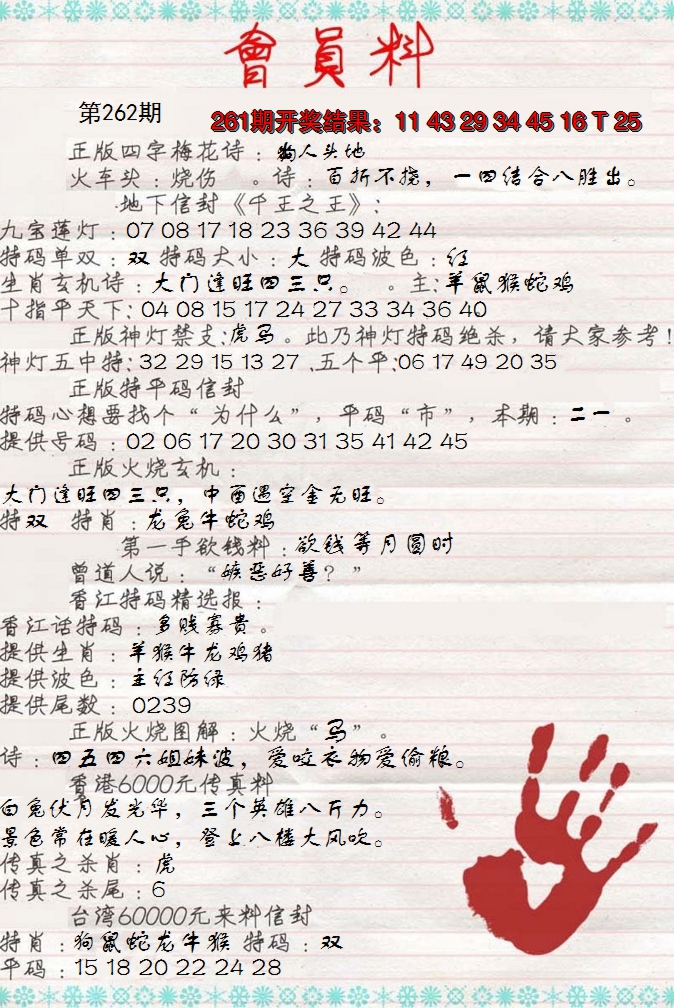 會員料
第262期
261期开奖结果：11 43 29 34 45 16 T 25
正版四字梅花诗：狗人头地
火车头：烧伤 。诗：百折不挠，一四结合八胜出。
地下信封《千王之王》：
九宝莲灯：07 08 17 18 23 36 39 42 44
特码单双：双 特码大小：大 特码波色：红
生肖玄机诗：大门逢旺四三只。 。主:羊鼠猴蛇鸡
十指平天下:04 08 15 17 24 27 33 34 36 40
正版神灯禁支:虎马。此乃神灯特码绝杀，请大家参考!
神灯五中特:32 29 15 13 27 .五个平:06 17 49 20 35
正版特平码信封
特码心想要找个“为什么”，平码“市”，本期：二一 。
提供号码：02 06 17 20 30 31 35 41 42 45
正版火烧玄机：
大门逢旺四三只，中酉遇空金无旺。
特双 特肖：龙兔牛蛇鸡
第一手欲钱料：欲钱等月圆时
曾道人说：“嫉恶好善？”
香江特码精选报：
香江话特码：多贱寡贵。
提供生肖：羊猴牛龙鸡猪
提供波色：主红防绿
提供尾数：0239
正版火烧图解：火烧“马”。
诗：四五四六姐妹波，爱咬衣物爱偷粮。
香港6000元传真料
白兔伏月发光华，三个英雄八斤力。
景色常在暖人心，登上八楼大风吹。
传真之杀肖：虎
传真之杀尾：6
台湾60000元来料信封
特肖：狗鼠蛇龙牛猴 特码：双
平码：15 18 20 22 24 28